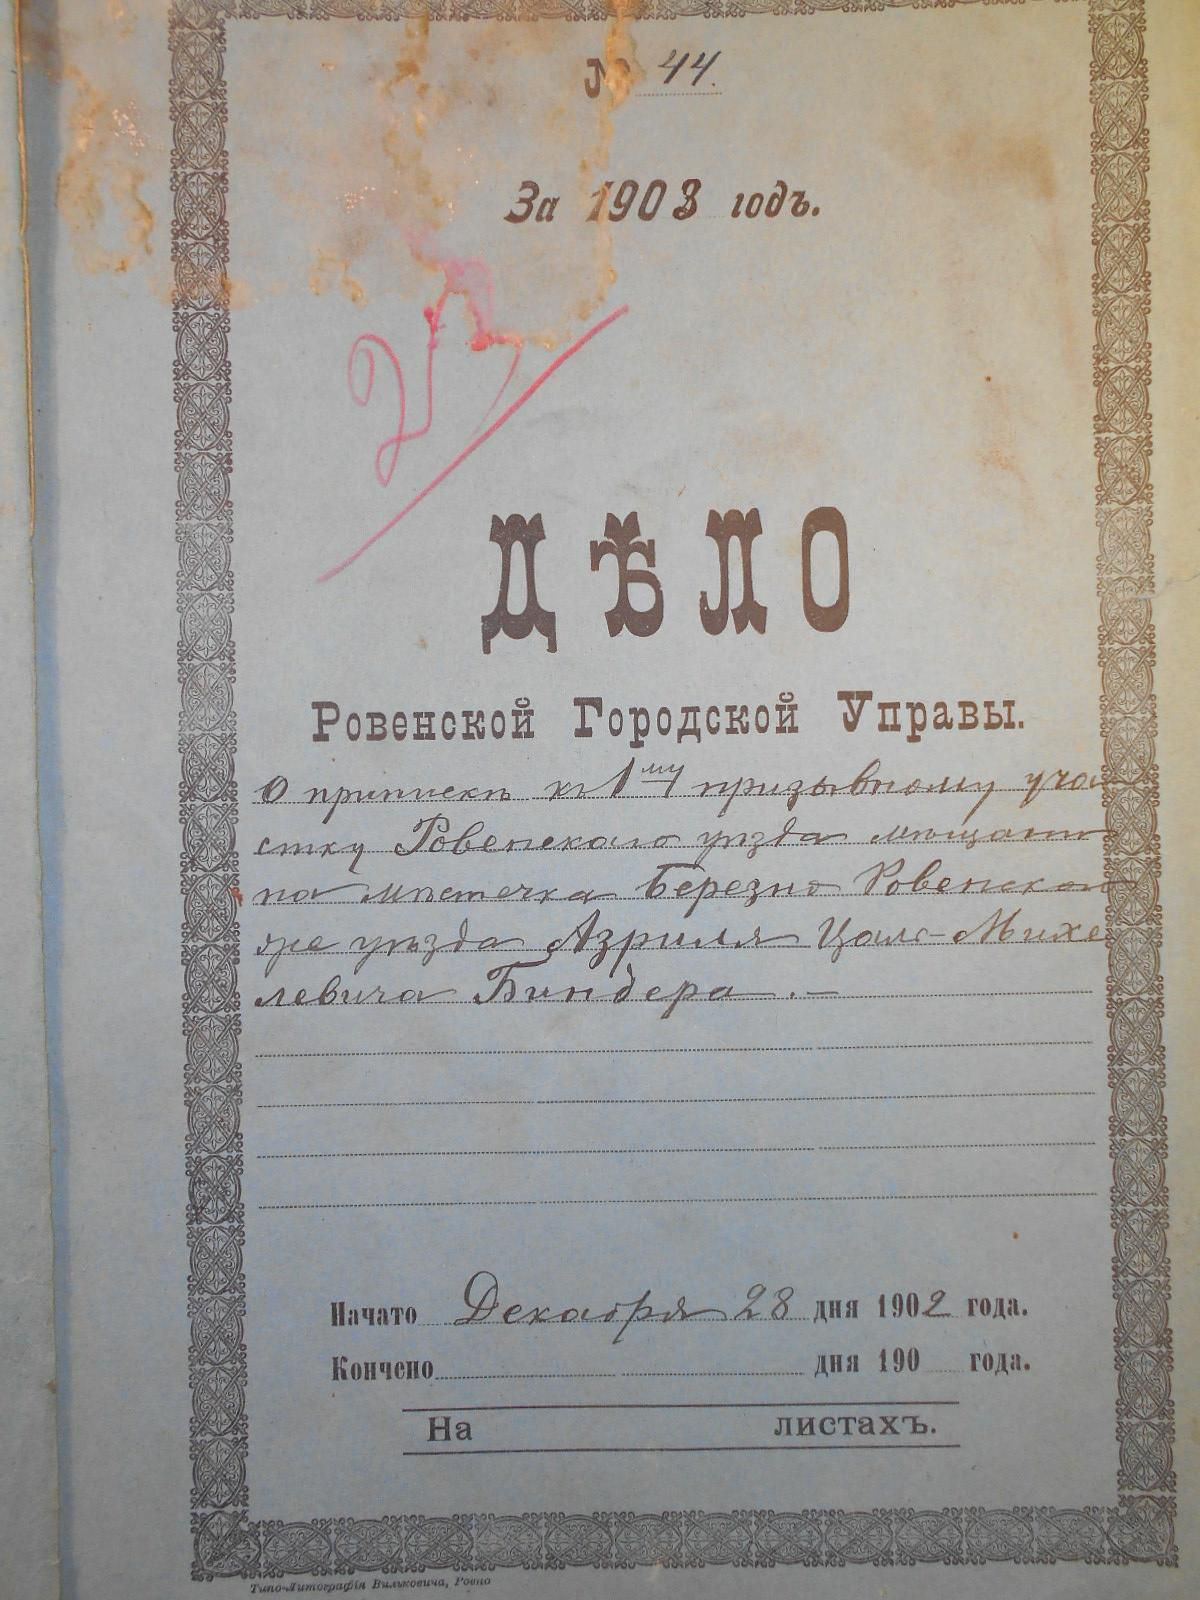 № 44.
За 1903 годъ.
ДѢЛО
Ровенской Городской Управы.
О припискѣ къ 1му призывному уча
стку Ровенскаго уѣзда мѣщани
на мѣстечка Березно Ровенскаго
же уѣзда Азриля Цаль-Михе
левича Биндера. —
Начато Декабря 28 дня 1902 года.
Кончено дня 190 года.
На листахъ.
Типо-Литографія Вильковича, Ровно